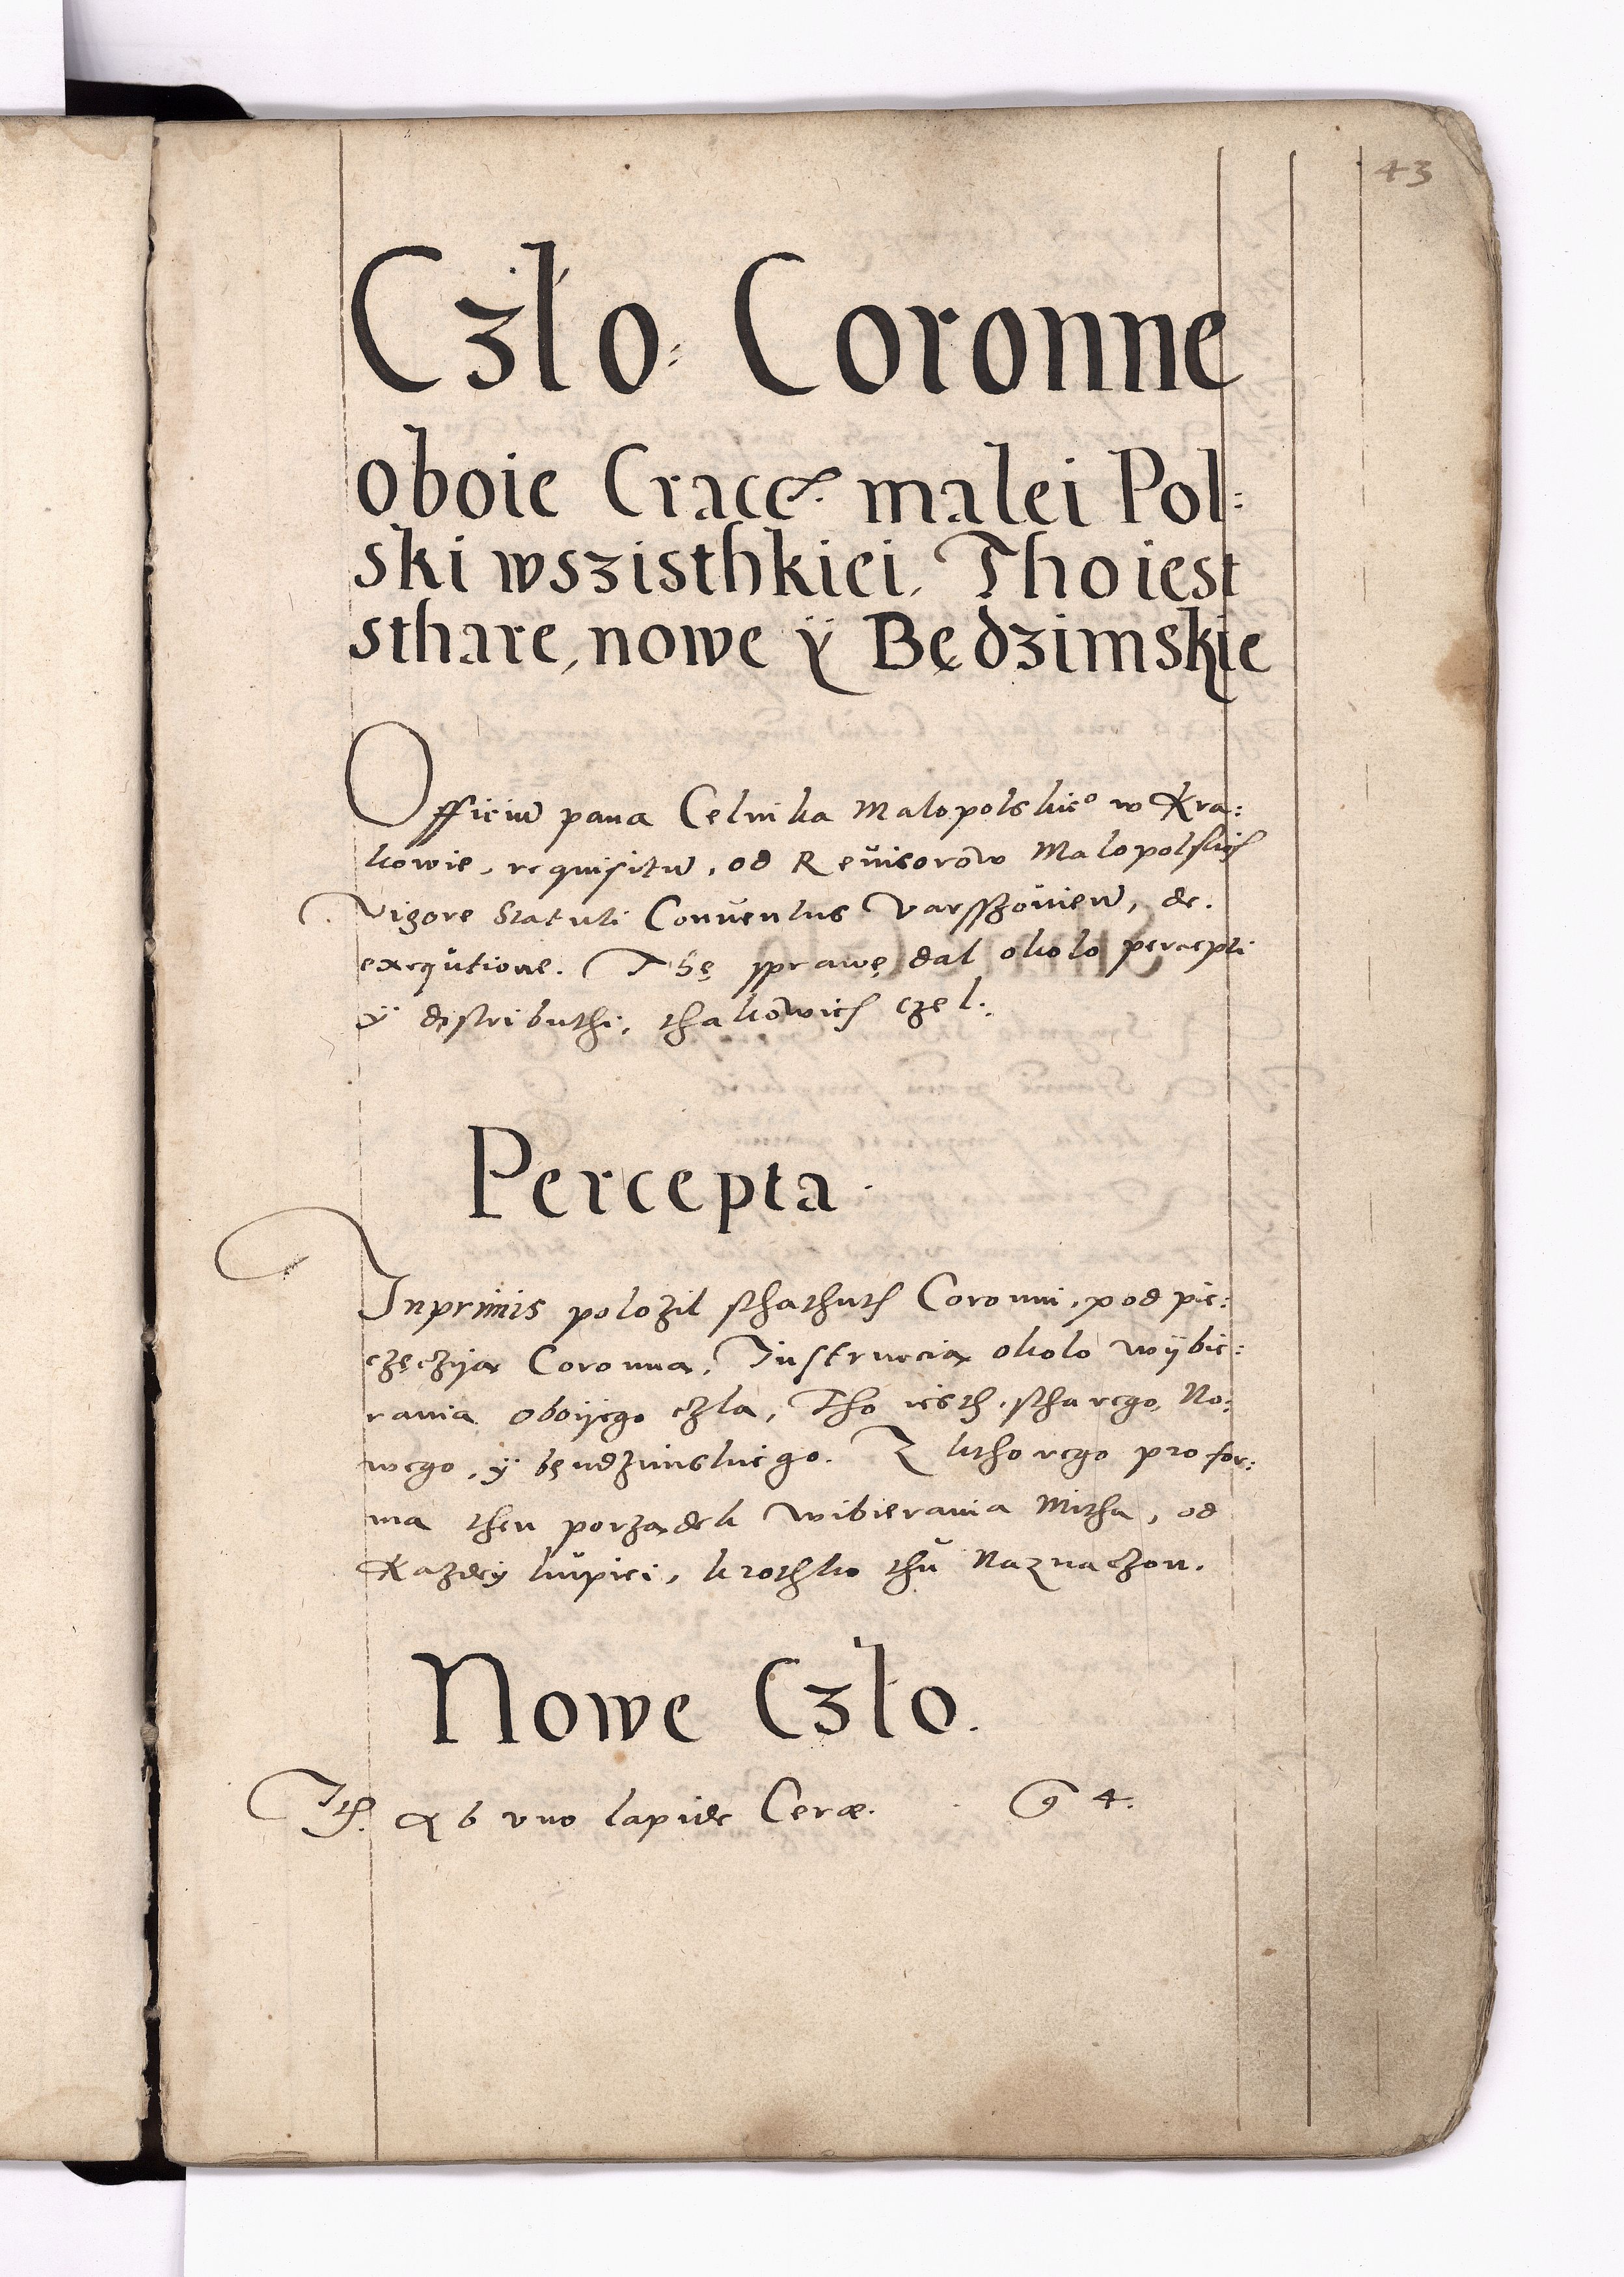 43
Czło: Coronne
oboie Cracc. malei Pol:
ski wszisthkiei, Tho iest
sthare, nowe ÿ Będzimskie
Officiū pana Celnika Malopolskieº w Kra:
kowie, requisitū, od Reuisorow Malopolskich
Vigore Statuti Conuentus Varsszouien̄, de.
exequtione. Thę sprawę dal okolo percepti
ÿ distributhi, thakowich czel.
Percepta.
Inprimis polozil sthathuth Coronni, pod pie:
częczyą Coronna, Instructią okolo wÿbie:
rania oboÿego czla, Tho iesth, stharego, No:
wego, ÿ bęndzimskiego. Z kthorego pro for:
ma then porządek wibierania Mitha, od
Kazdey kupiei, krothko thu Naznaczon.
Nowe Czło.
Ith. Ab vno lapide Ceræ. g 4.